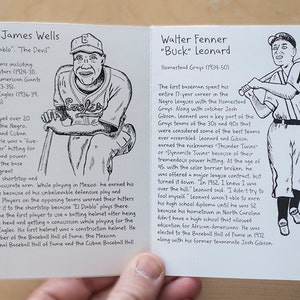 James Wells
Diablo", "The Devil"
ms including
American Giants
Eagles (1936-39,
Eagles
ed over 20
the Negro,
and Cuban
was a "five-
for
and power.
for their
their shortstop
accurate arm. While playing in Mexico, he earned his
because of his cannable defensive play and
Players on the opposing teams warned their hitters
it to the shortstop because "El Diablo" plays there.
the first player to use a batting helmet after being
head and getting a concussion while playing for the
Eagles. His first helmet was a construction helmet. He
ber of the Baseball Hall of Fame, the Mexican
nal Baseball Hall of Fame and the Cuban Baseball Hall
Walter Fenner
"Buck" Leonard
Homestead Grays (1934-50)
The first baseman spent his
entire 17-year career in the
Negro Leagues with the Homestead
Grays. Along with catcher Josh
Gibson, he was a key part of the
Grays teams of the 30s and 40s that
were considered some of the best teams
ever assembled. Leonard and Gibson
earned the nicknames "Thunder Twins"
or "Dynamite Twins" because of their
tremendous power hitting. At the age of
45, with the color barrier broken, he
was offered a major league contract, but
turned it down. "In 1952, I knew I was
over the hill," Leonard said. "I didn't try to
fool myself." Leonard wasn't able to earn
his high school diploma until he was 52
because his hometown in North Carolina
didn't have a high school that allowed
education for African-Americans. He was
elected to the Baseball Hall of Fame in 1972
along with his former teammate Josh Gibson.